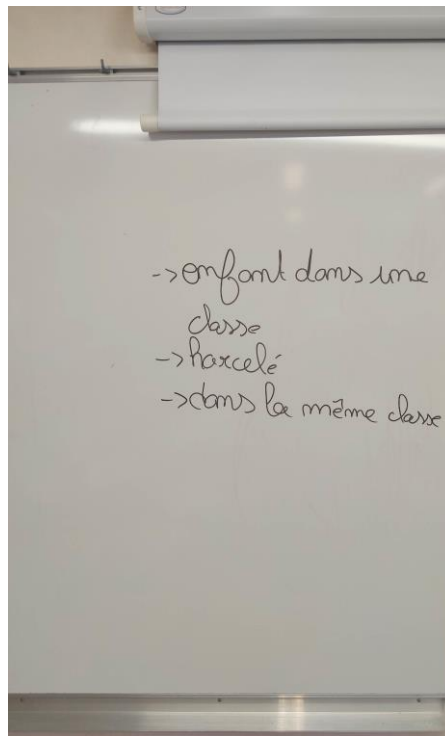 ->enfant dans une
classe
->harcelé
->dans la même classe